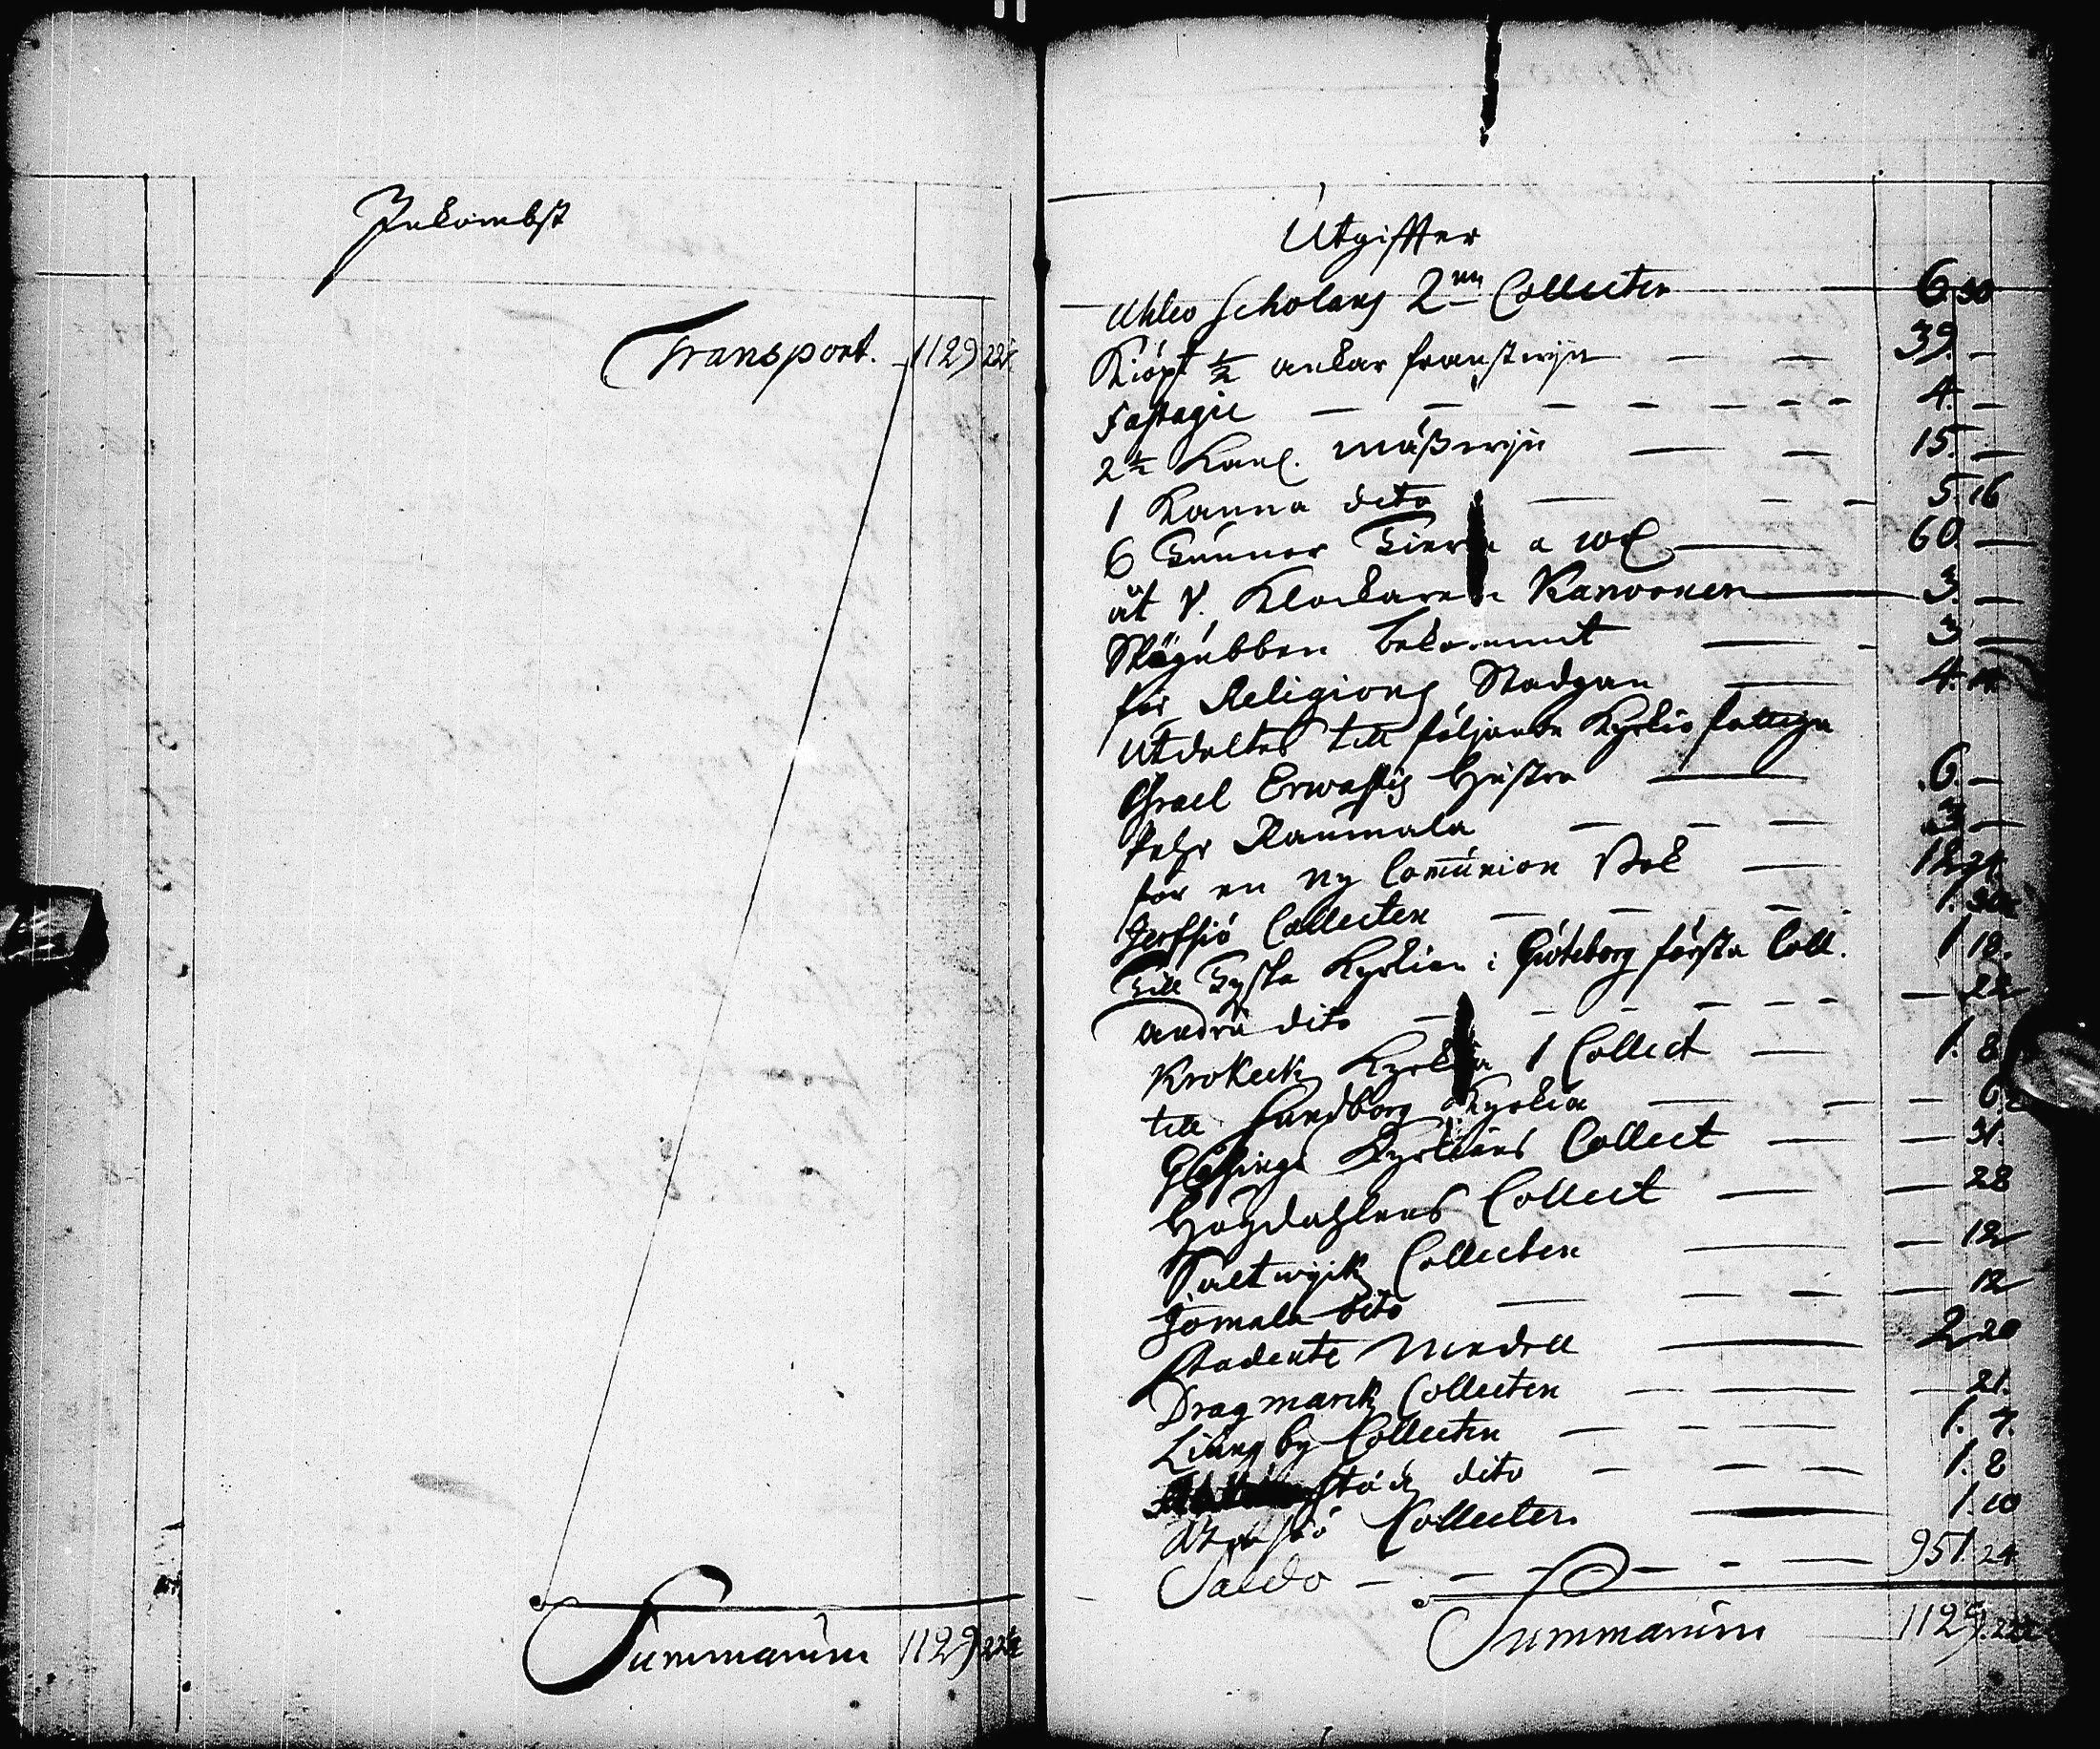 Inkombst
Transport. 1129 22½
Summarum 1129 22½
Utgiffter
Uhleo Scholans 2:nn Collecten 6. 30
Kiöpt ½ ankar franstwijn — — — 39. —
Fastagie — — — — — — — — 4. —
2½ Kan. Mäßwijn — — 15. —
1 Kanna dito — — — 5. 16
6 Tunnor Tiera a 10 — 60. —
åt V. Klockaren Karvonen — 3. —
Spögubben bekommit — — 3 —
för Religions Stadgan — 4.
Utdeltes till följande Kyrkio fattige
Israel Erwastis Hustru — 6. —
Pehr Raumala — — — 3 —
för en ny Comunion Bok — 12 24.
Jerfsiö Collecten — — — — 1. 30
Till Tyska Kyrkian i Giöteborg första Coll. 1 18.
andra dito — — — — — — 22
Krokeck Kyrkia 1 Collect — 1. 8
till Sandborg Kyrkia — — — 6
Kyrkians Collect — — 31.
Högdahlens Collect — — 28
Saltwijk Collecten — — 12
Jomala dito — — — — 12
Studente — 2 20
Dragmarck Collecten — — — 21.
Liungby Collecten — — — 1. 7.
städz dito — — — 1. 8
siö Collecten — 1. 10
Saldo — — — — — — 951. 24
Summarum 1129. 22½